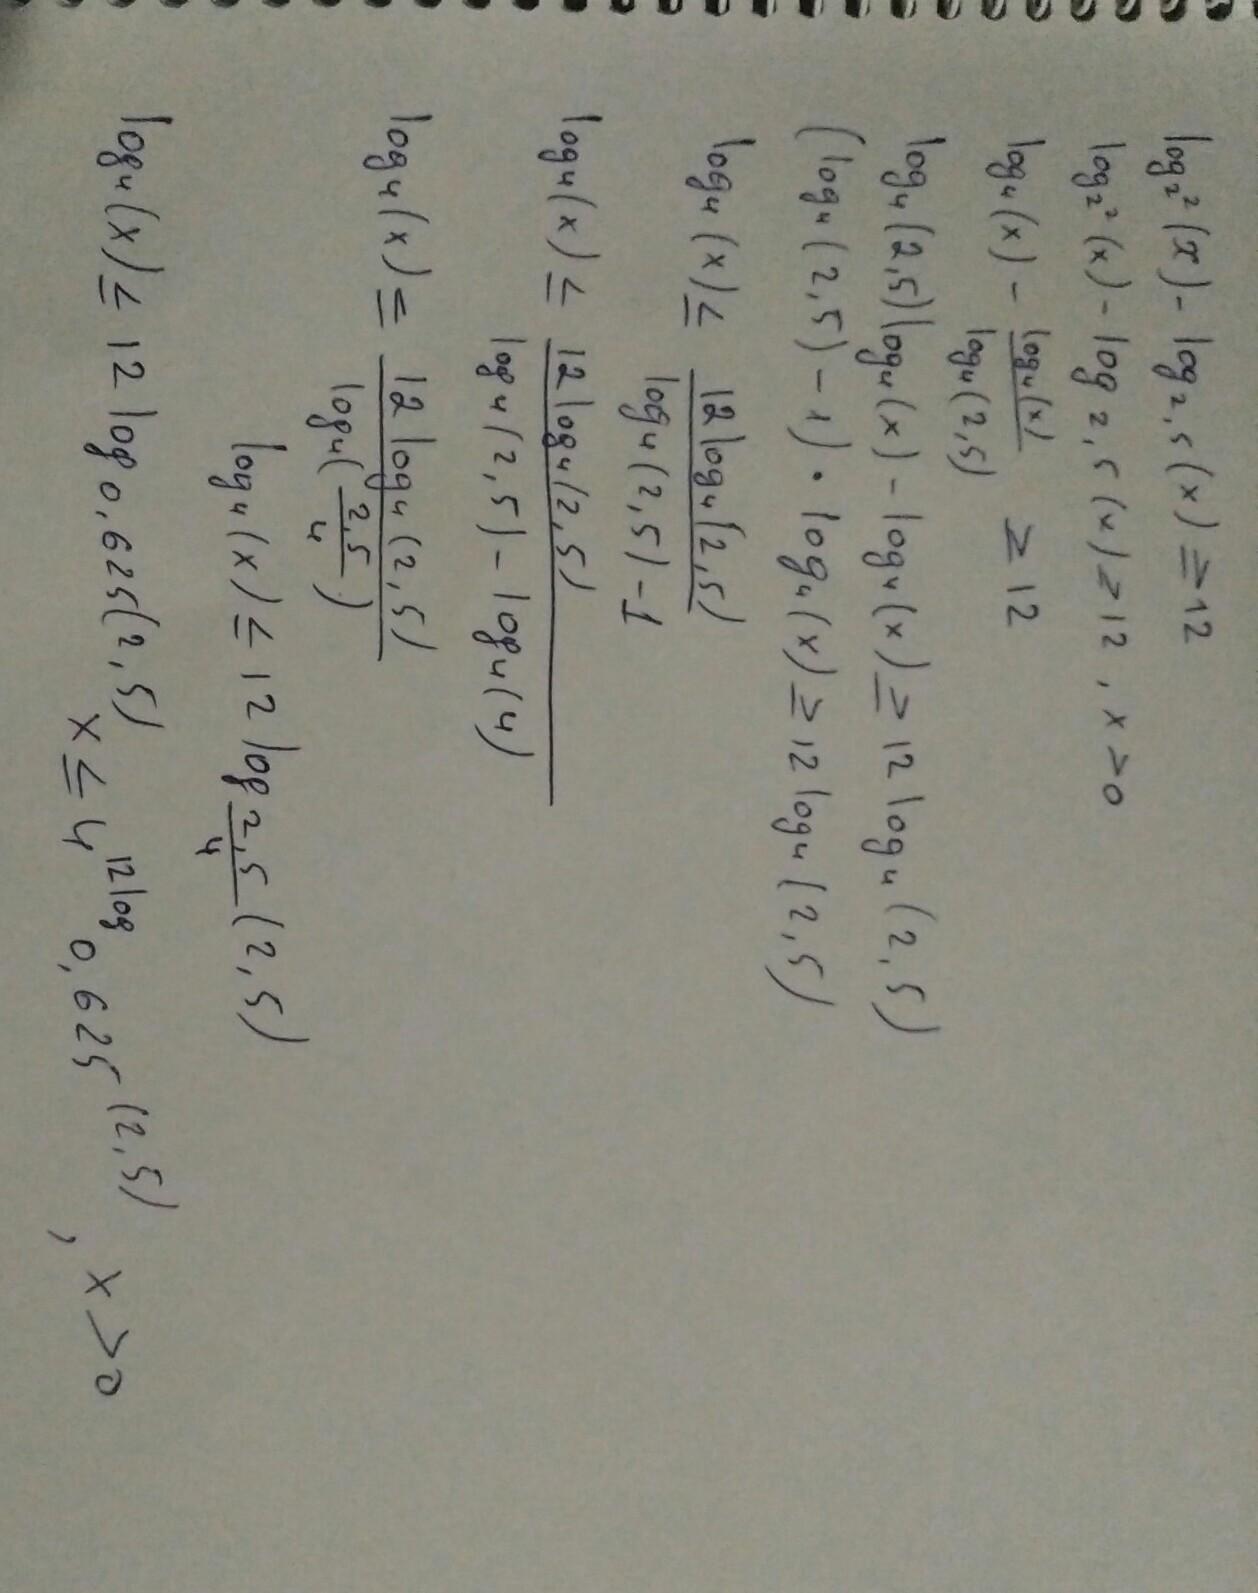 log₂²(x) - log₂,₅(x) ≥ 12
log₂²(x) - log₂,₅(x) ≥ 12 , x > 0
log₄(x) - log₄(x)/log₄(2,5) ≥ 12
log₄(2,5) log₄(x) - log₄(x) ≥ 12 log₄(2,5)
(log₄(2,5) - 1) · log₄(x) ≥ 12 log₄(2,5)
log₄(x) ≤ 12 log₄(2,5)/log₄(2,5) - 1
log₄(x) ≤ 12 log₄(2,5)/log₄(2,5) - log₄(4)
log₄(x) = 12 log₄(2,5)/log₄(2,5/4)
log₄(x) ≤ 12 log 2,5/4 (2,5)
log₄(x) ≤ 12 log 0,625 (2,5)
x ≤ 4^12 log 0,625 (2,5) , x > 0